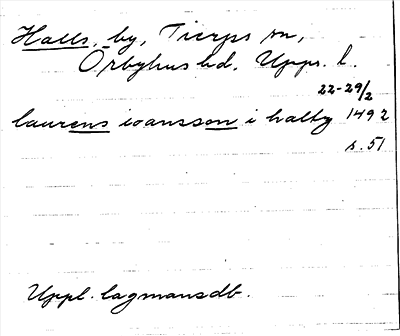 Halls, by, Tierps sn,
Örbyhus hd. Upps. l.
22-29/2
laurens ioansson i halby 1492
s. 51
Uppl. lagmansdb.